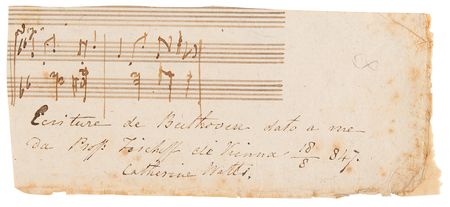 Ecriture de Beethoven dato a me
da Prof. Fischof di Vienna 18/8 847.
Catherine Watts.